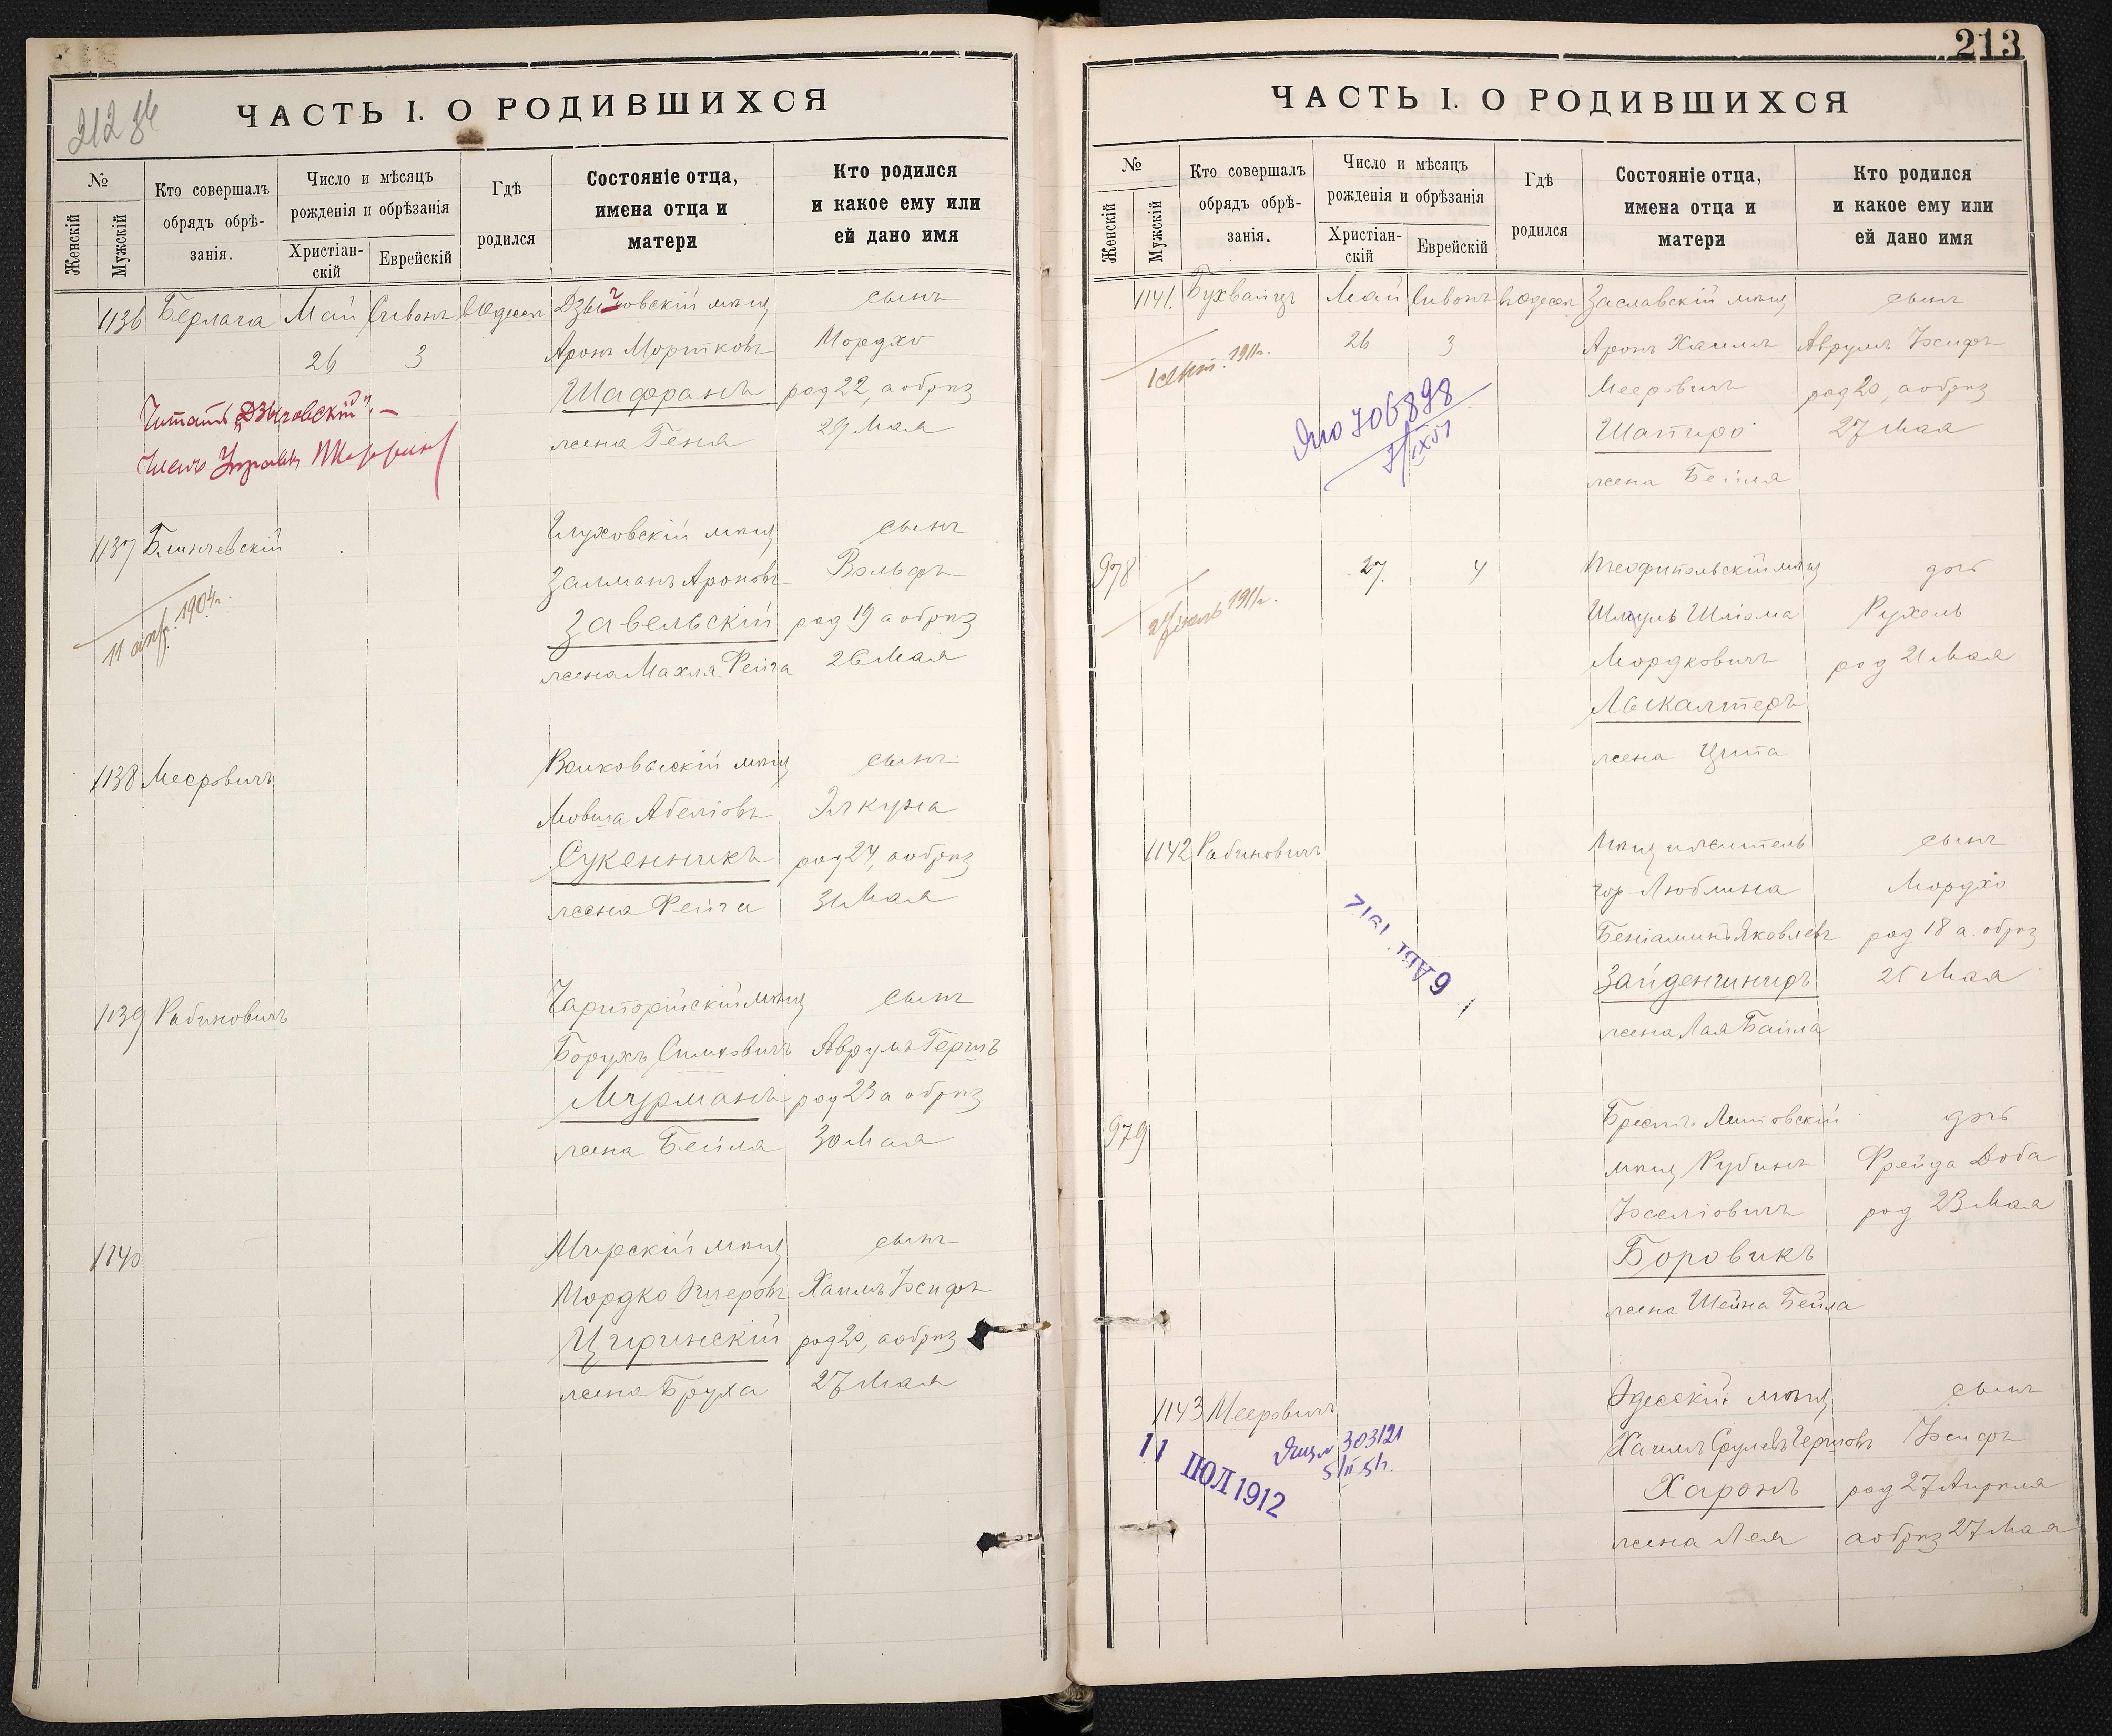 212 об
ЧАСТЬ I. О РОДИВШИХСЯ
№
Женскій
Мужскій
Кто совершалъ обрядъ обрѣ-занія.
Число и мѣсяцъ рожденія и обрѣзанія
Христіан-скій
Еврейскій
Гдѣ родился
Состояніе отца, имена отца и матери
Кто родился и какое ему или ей дано имя
1136 Берлага Май Сивонъ въ Одессѣ Дзыговскій мѣщ сынъ
26 3 Аронъ Мортковъ Мордхо
Шафранъ род 22, а обрѣз
жена Геня 29 Мая
Читать „Дзыговскій“. —
Членъ Управы
1137 Блинчевскій Глуховскій мѣщ сынъ
Залманъ Ароновъ Вольфъ
Завельскій род 19 а обрѣз
жена Махля Фейга 26 Мая
1904 г.
1138 Мееровичъ Волковыскій мѣщ сынъ
Мовша Абеліовъ Элкуна
Сукенникъ род 24, а обрѣз
жена Фейга 31 Мая
1139 Рабиновичъ Чарторійскій мѣщ сынъ
Борухъ Симховичъ Аврумъ Гершъ
Мурманъ род 23 а обрѣз
жена Бейла 30 Мая
1140 Мирскій мѣщ сынъ
Мордко Хаимъ Іосифъ
Циринскій род 20, а обрѣз
жена Бруха 27 Мая
213
ЧАСТЬ I. О РОДИВШИХСЯ
№
Женскій
Мужскій
Кто совершалъ обрядъ обрѣ-занія.
Число и мѣсяцъ рожденія и обрѣзанія
Христіан-скій
Еврейскій
Гдѣ родился
Состояніе отца, имена отца и матери
Кто родился и какое ему или ей дано имя
1141. Бухвайцъ Май Сивонъ въ Одессѣ Заславскій мѣщ сынъ
26 3 Аронъ Хаимъ Аврумъ Іосифъ
Мееровичъ род 20, а обрѣз
Шапиро 27 Мая
жена Бейля
1 сент. 1911 г.
706898
978 27. 4 Теофипольскій мѣщ дочь
Шмуль Шліома Рухель
Мордковичъ род 21 Мая
Лыкалтеръ
жена Ципа
1911 г.
1142 Рабиновичъ Мѣщ и житель сынъ
гор Люблина Мордхо
Беніаминъ Яковлевъ род 18 а обрѣз
Зайденгинфъ 25 Мая
жена Лая Байла
6 АВГ. 1912
979 Брестъ-Литовскій дочь
мѣщ Рубинъ Фрейда Доба
Іоселіовичъ род 23 Мая
Боровикъ
жена Шейна Бейла
1143 Мееровичъ Одесскій мѣщ сынъ
Хаимъ Срулевъ Гершовъ Іосифъ
Харонъ род 27 Апрѣля
жена Лея а обрѣз 27 Мая
11 ІЮЛ 1912
303121